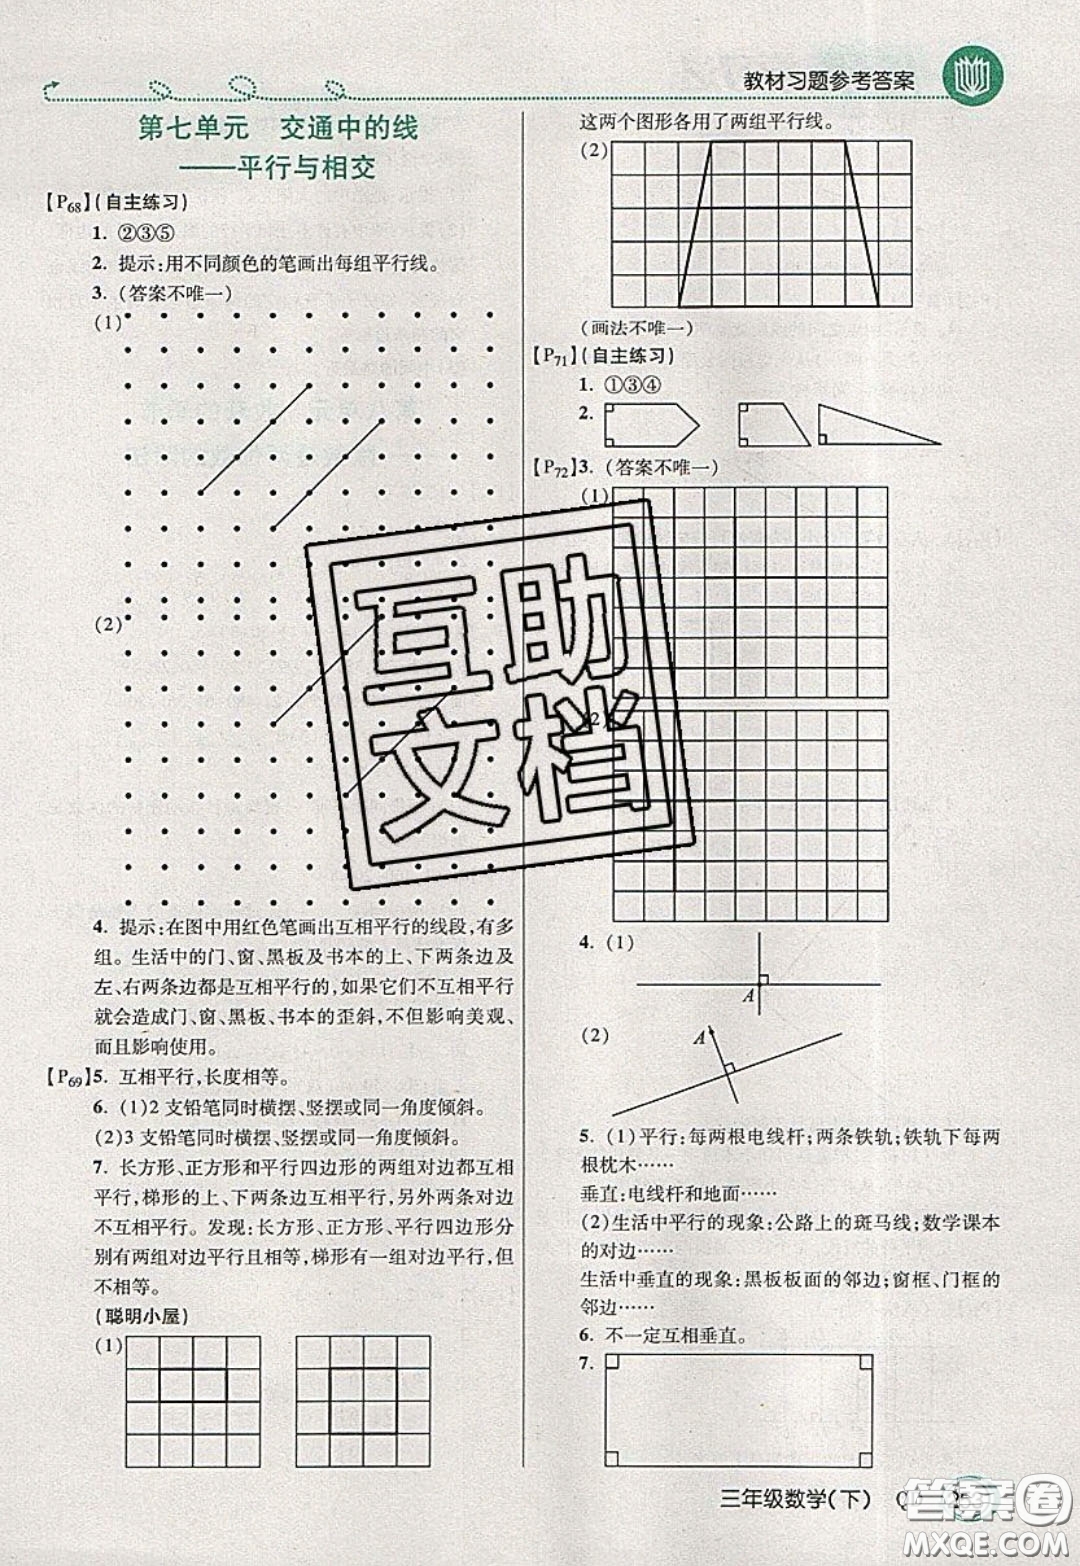 教材习题参考答案
第七单元 交通中的线
——平行与相交
【P68】(自主练习)
1. ②③⑤
2. 提示:用不同颜色的笔画出每组平行线。
3. (答案不唯一)
(1)
(2)
4. 提示:在图中用红色笔画出互相平行的线段,有多
组。生活中的门、窗、黑板及书本的上、下两条边及
左、右两条边都是互相平行的,如果它们不互相平行
就会造成门、窗、黑板、书本的歪斜,不但影响美观、
而且影响使用。
【P69】5. 互相平行,长度相等。
6. (1)2 支铅笔同时横摆、竖摆或同一角度倾斜。
(2)3 支铅笔同时横摆、竖摆或同一角度倾斜。
7. 长方形、正方形和平行四边形的两组对边都互相
平行,梯形的上、下两条边互相平行,另外两条对边
不互相平行。发现:长方形、正方形、平行四边形分
别有两组对边平行且相等,梯形有一组对边平行,但
不相等。
(聪明小屋)
(1)
这两个图形各用了两组平行线。
(2)
(画法不唯一)
【P71】(自主练习)
1. ①③④
2.
【P72】3. (答案不唯一)
(1)
(2)
4. (1)
A
(2)
A
5. (1)平行:每两根电线杆;两条铁轨;铁轨下每两
根枕木……
垂直:电线杆和地面……
(2)生活中平行的现象:公路上的斑马线;数学课本
的对边……
生活中垂直的现象:黑板板面的邻边;窗框、门框的
邻边……
6. 不一定互相垂直。
7.
三年级数学(下)
互助
文档
答案卷
MXQE.COM